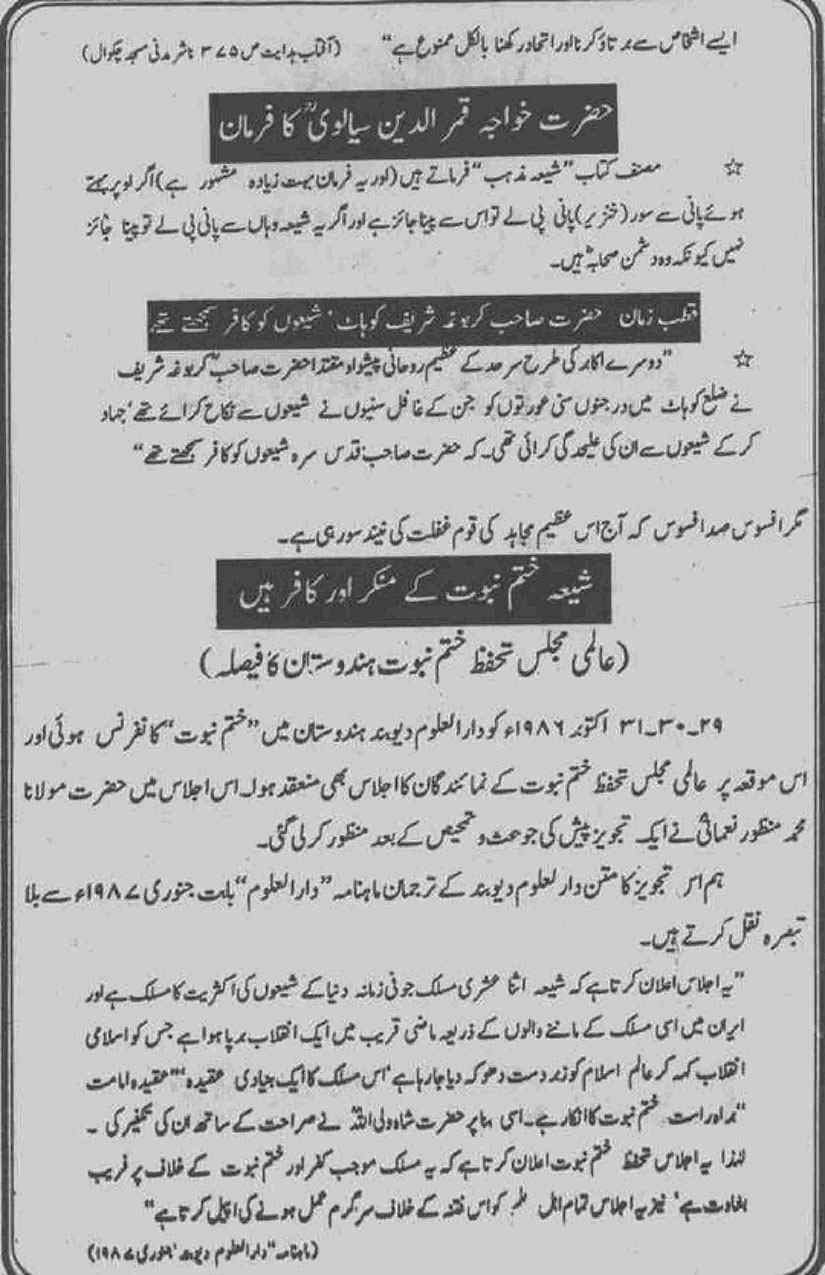 ایسے اشخاص سے برتاؤ کرنا اور اتحاد رکھنا بالکل ممنوع ہے“ (آفتاب ہدایت ص ۳۷۵ ناشر مدنی مسجد چکوال)
حضرت خواجہ قمر الدین سیالویؒ کا فرمان
☆ مصنف کتاب ”شیعہ مذہب“ فرماتے ہیں (اور یہ فرمان بہت زیادہ مشہور ہے) اگر اوپر بہتے
ہوئے پانی سے سور (خنزیر) پانی پی لے تو اس سے پینا جائز ہے اور اگر یہ شیعہ وہاں سے پانی پی لے تو پینا جائز
نہیں کیونکہ وہ دشمن صحابہؓ ہیں۔
قطب زمان حضرت صاحب کربوغہ شریف کوہاٹ‘ شیعوں کو کافر سمجھتے تھے
☆ ”دوسرے اکابر کی طرح سرحد کے عظیم روحانی پیشوا و مقتدا حضرت صاحبؒ کربوغہ شریف
نے ضلع کوہاٹ میں درجنوں سنی عورتوں کو جن کے غافل سنیوں نے شیعوں سے نکاح کرائے تھے‘ جہاد
کر کے شیعوں سے ان کی علیحدگی کرائی تھی۔ کہ حضرت صاحب قدس سرہ شیعوں کو کافر سمجھتے تھے“
مگر افسوس صد افسوس کہ آج اس عظیم مجاہد کی قوم غفلت کی نیند سو رہی ہے۔
شیعہ ختم نبوت کے منکر اور کافر ہیں
(عالمی مجلس تحفظ ختم نبوت ہندوستان کا فیصلہ)
۲۹۔۳۰۔۳۱ اکتوبر ۱۹۸۶ء کو دارالعلوم دیوبند ہندوستان میں ”ختم نبوت“ کانفرنس ہوئی اور
اس موقعہ پر عالمی مجلس تحفظ ختم نبوت کے نمائندگان کا اجلاس بھی منعقد ہوا۔ اس اجلاس میں حضرت مولانا
محمد منظور نعمانیؒ نے ایک تجویز پیش کی جو بحث و تمحیص کے بعد منظور کر لی گئی۔
ہم اس تجویز کا متن دارالعلوم دیوبند کے ترجمان ماہنامہ ”دارالعلوم“ بابت جنوری ۱۹۸۷ء سے بلا
تبصرہ نقل کرتے ہیں۔
”یہ اجلاس اعلان کرتا ہے کہ شیعہ اثنا عشری مسلک جو فی زمانہ دنیا کے شیعوں کی اکثریت کا مسلک ہے اور
ایران میں اسی مسلک کے ماننے والوں کے ذریعہ ماضی قریب میں ایک انقلاب برپا ہوا ہے جس کو اسلامی
انقلاب کہہ کر عالم اسلام کو زبردست دھوکہ دیا جا رہا ہے‘ اس مسلک کا ایک بنیادی عقیدہ ”عقیدہ امامت
“براہ راست ختم نبوت کا انکار ہے۔ اسی بنا پر حضرت شاہ ولی اللہؒ نے صراحت کے ساتھ ان کی تکفیر کی ۔
لہٰذا یہ اجلاس تحفظ ختم نبوت اعلان کرتا ہے کہ یہ مسلک موجب کفر اور ختم نبوت کے خلاف پر فریب
بغاوت ہے‘ نیز یہ اجلاس تمام اہل علم کو اس فتنہ کے خلاف سرگرم عمل ہونے کی اپیل کرتا ہے“
(ماہنامہ ”دارالعلوم دیوبند‘ جنوری ۱۹۸۷)